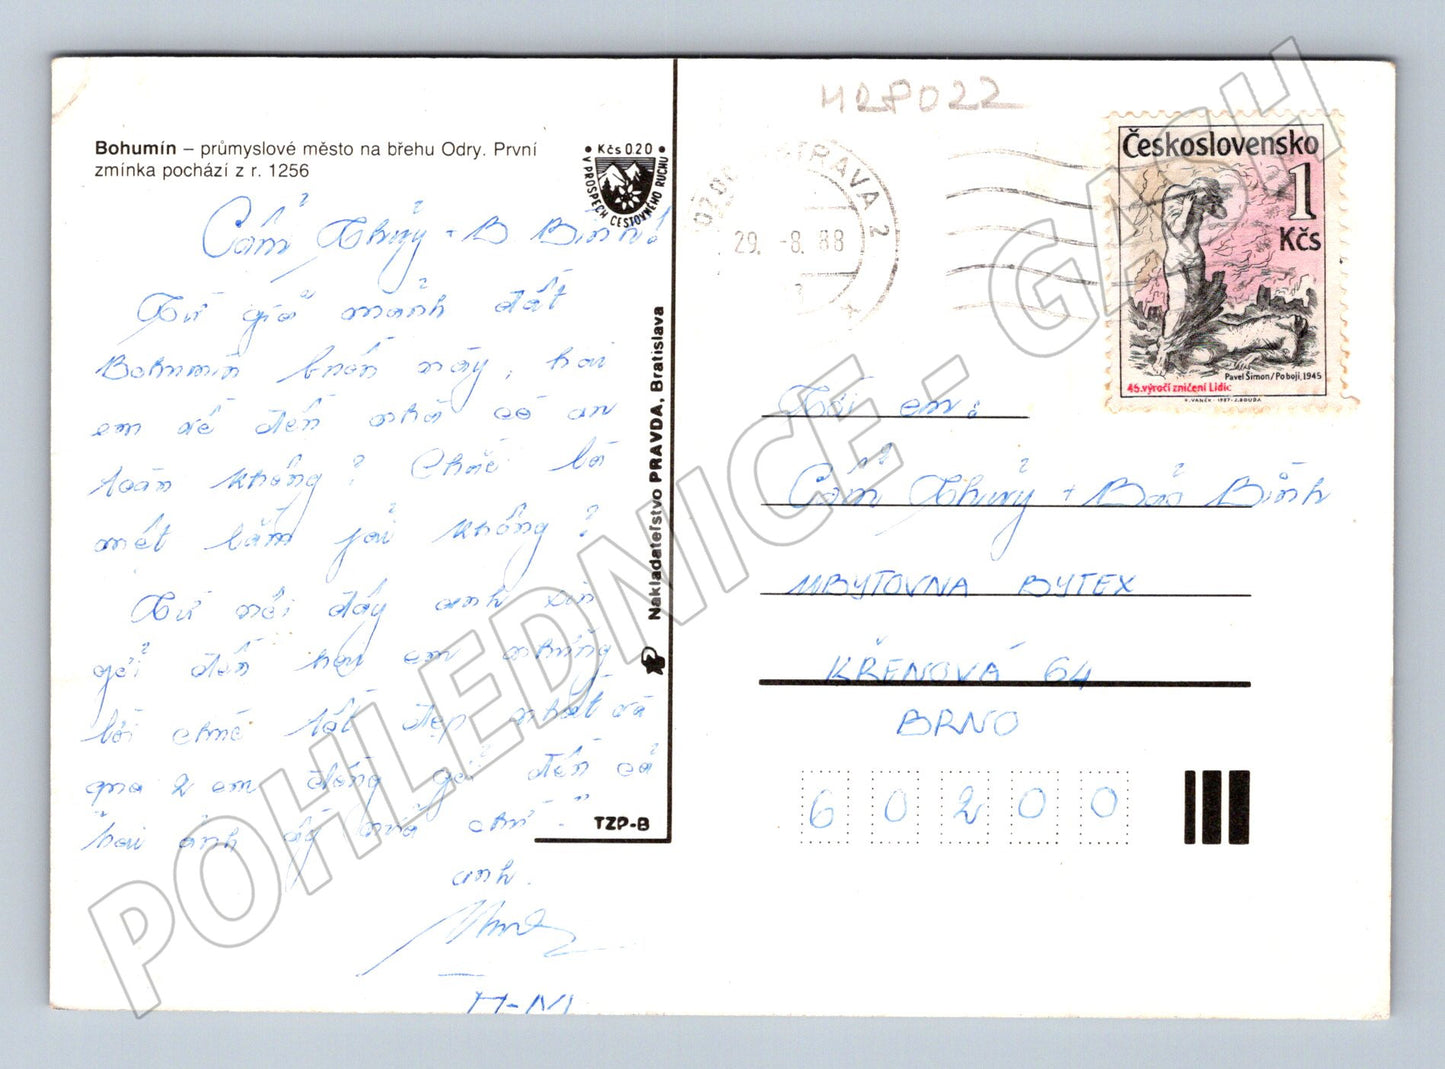 Bohumín – průmyslové město na břehu Odry. První
zmínka pochází z r. 1256
Kčs 0.20
V PROSPĚCH CESTOVNÉHO RUCHU
Cẩm Thủy + B Bình!
Từ giã mảnh đất
Bohumín bnén này, hai
em về đến nhà có an
toàn không? Chắc là
mệt lắm phải không?
Từ nơi đây anh xin
gởi đến hai em những
lời chúc tốt đẹp nhất và
qua 2 em đồng gởi đến cả
anh
Nakladateľstvo PRAVDA, Bratislava
TZP-B
MRP022
OSTRAVA 2
29. -8. 88
Československo
1
Kčs
Pavel Šimon/Po boji, 1945
45. výročí zničení Lidic
V. VANĚK - 1987 - J. BOUDA
Tới em:
Cẩm Thủy + Bảo Bình
UBYTOVNA BYTEX
KŘENOVÁ 64
BRNO
60200
POHLEDNICE - GASH